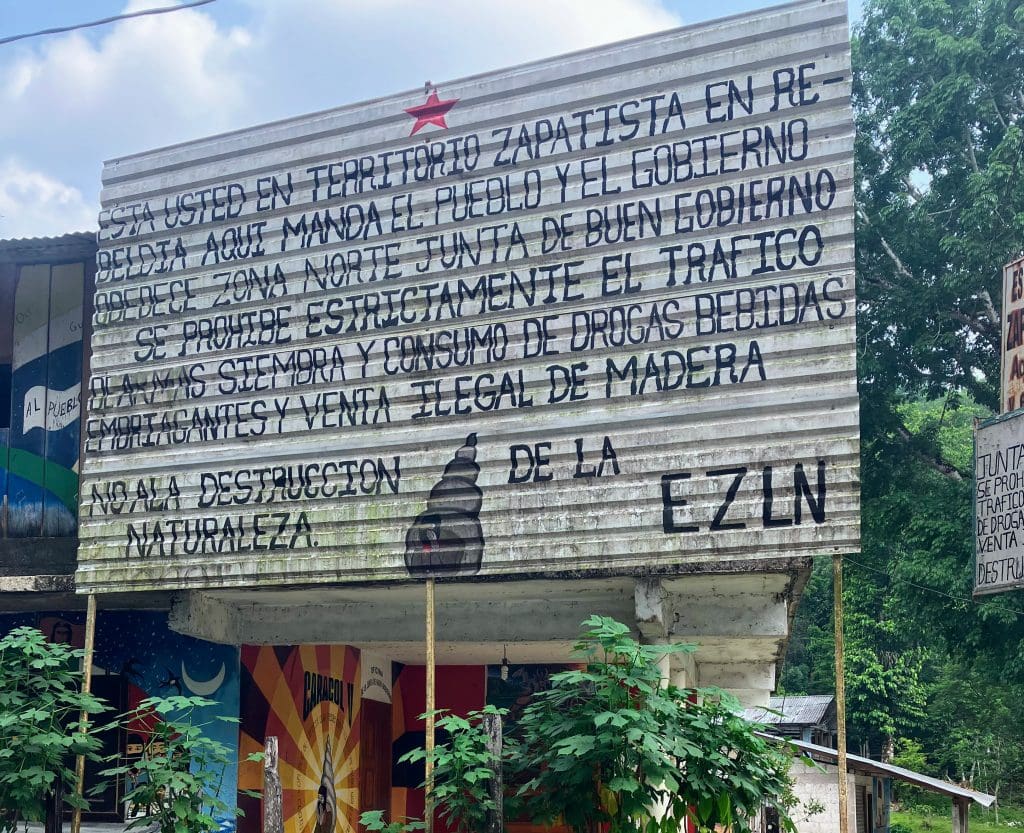 ESTA USTED EN TERRITORIO ZAPATISTA EN RE-
BELDIA AQUI MANDA EL PUEBLO Y EL GOBIERNO
OBEDECE ZONA NORTE JUNTA DE BUEN GOBIERNO
SE PROHIBE ESTRICTAMENTE EL TRAFICO
DE ARMAS SIEMBRA Y CONSUMO DE DROGAS BEBIDAS
EMBRIAGANTES Y VENTA ILEGAL DE MADERA
NO A LA DESTRUCCION DE LA
NATURALEZA.
EZLN
AL PUEBLO
CARACOL V
OFICINA
ES
ZA
JUNTA
SE PROH
TRAFICO
DE DROGA
VENTA
DESTRU